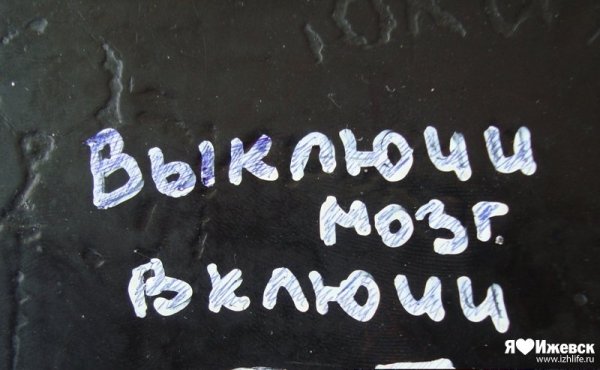 Выключи
мозг.
включи
Я❤Ижевск
www.izhlife.ru